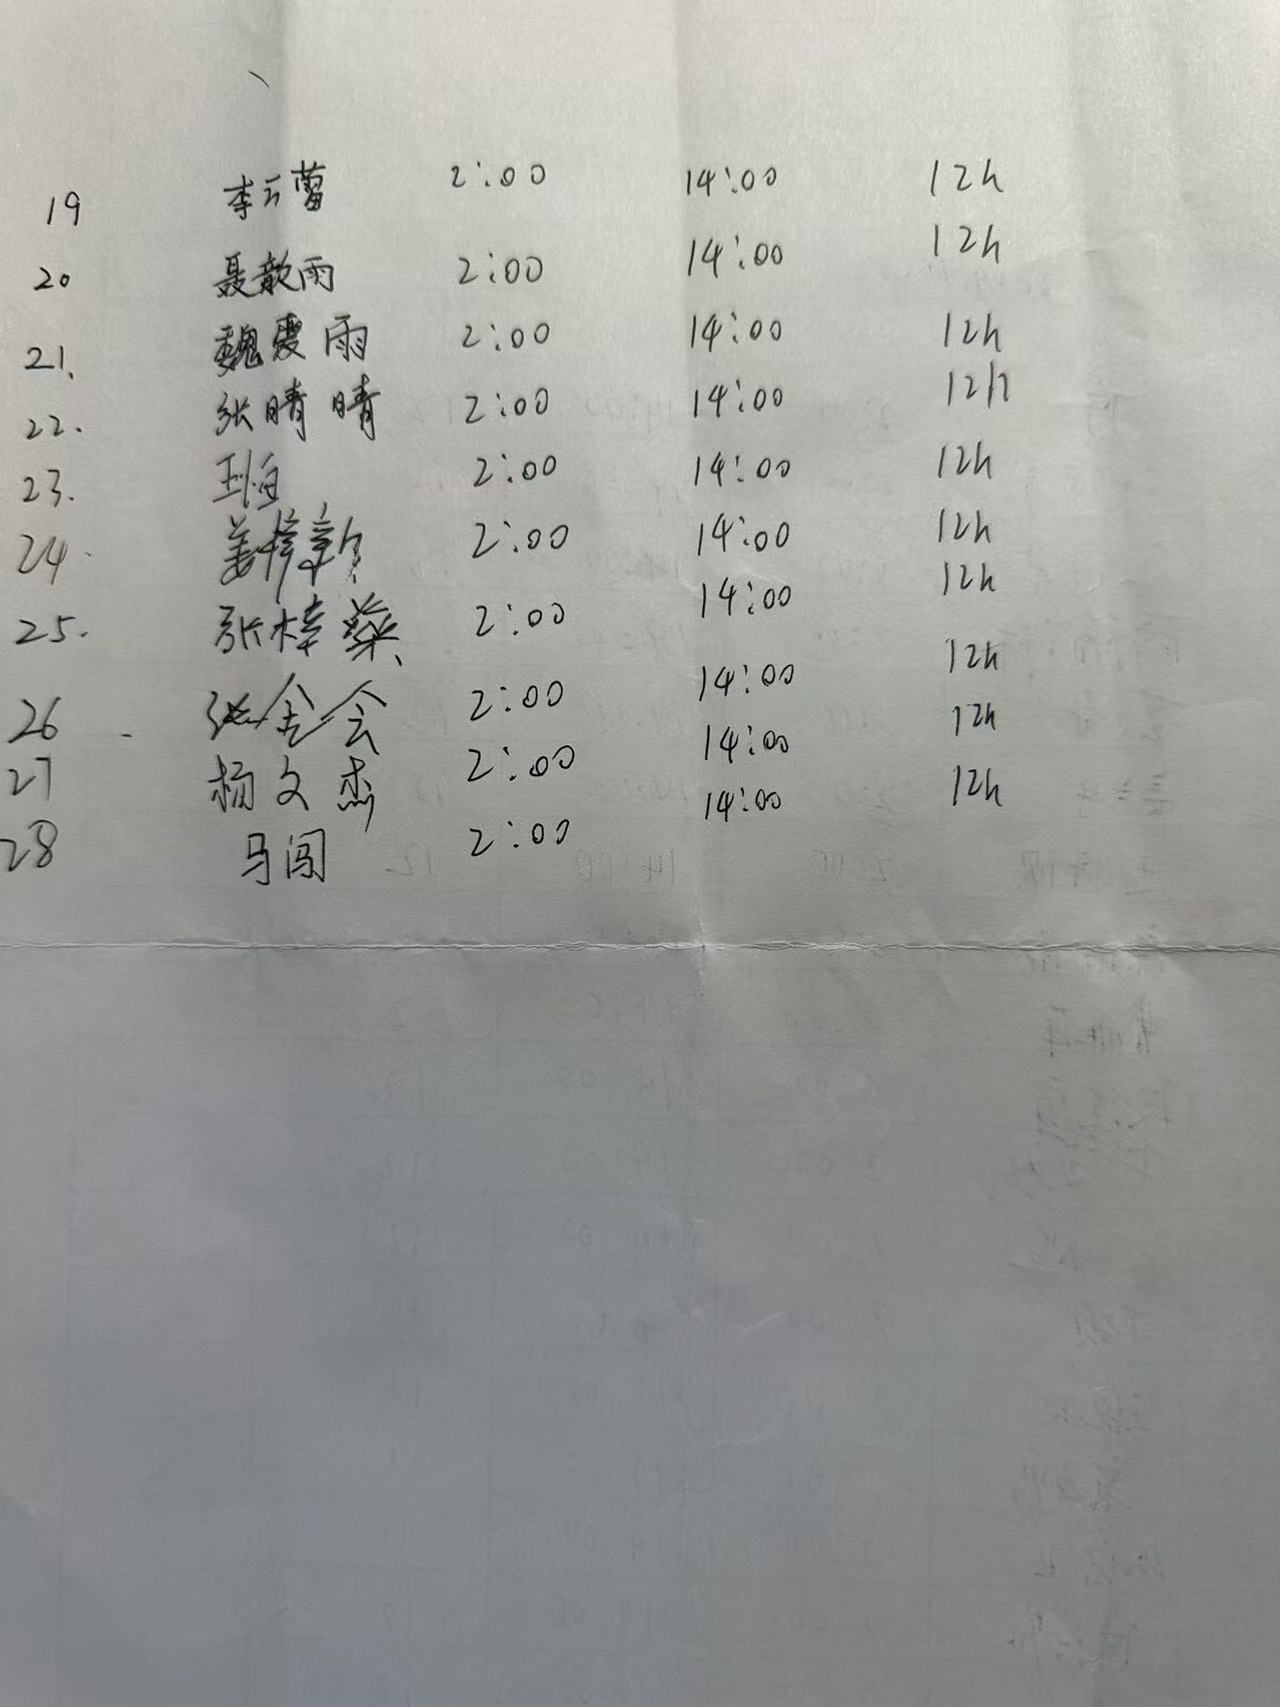 19 李云蕾 2:00 14:00 12h
20 聂歆雨 2:00 14:00 12h
21. 魏雯雨 2:00 14:00 12h
22. 张晴晴 2:00 14:00 12h
23. 2:00 14:00 12h
24. 姜 2:00 14:00 12h
25. 张 2:00 14:00 12h
26 张金会 2:00 14:00 12h
27 杨文杰 2:00 14:00 12h
28 马闯 2:00 14:00 12h